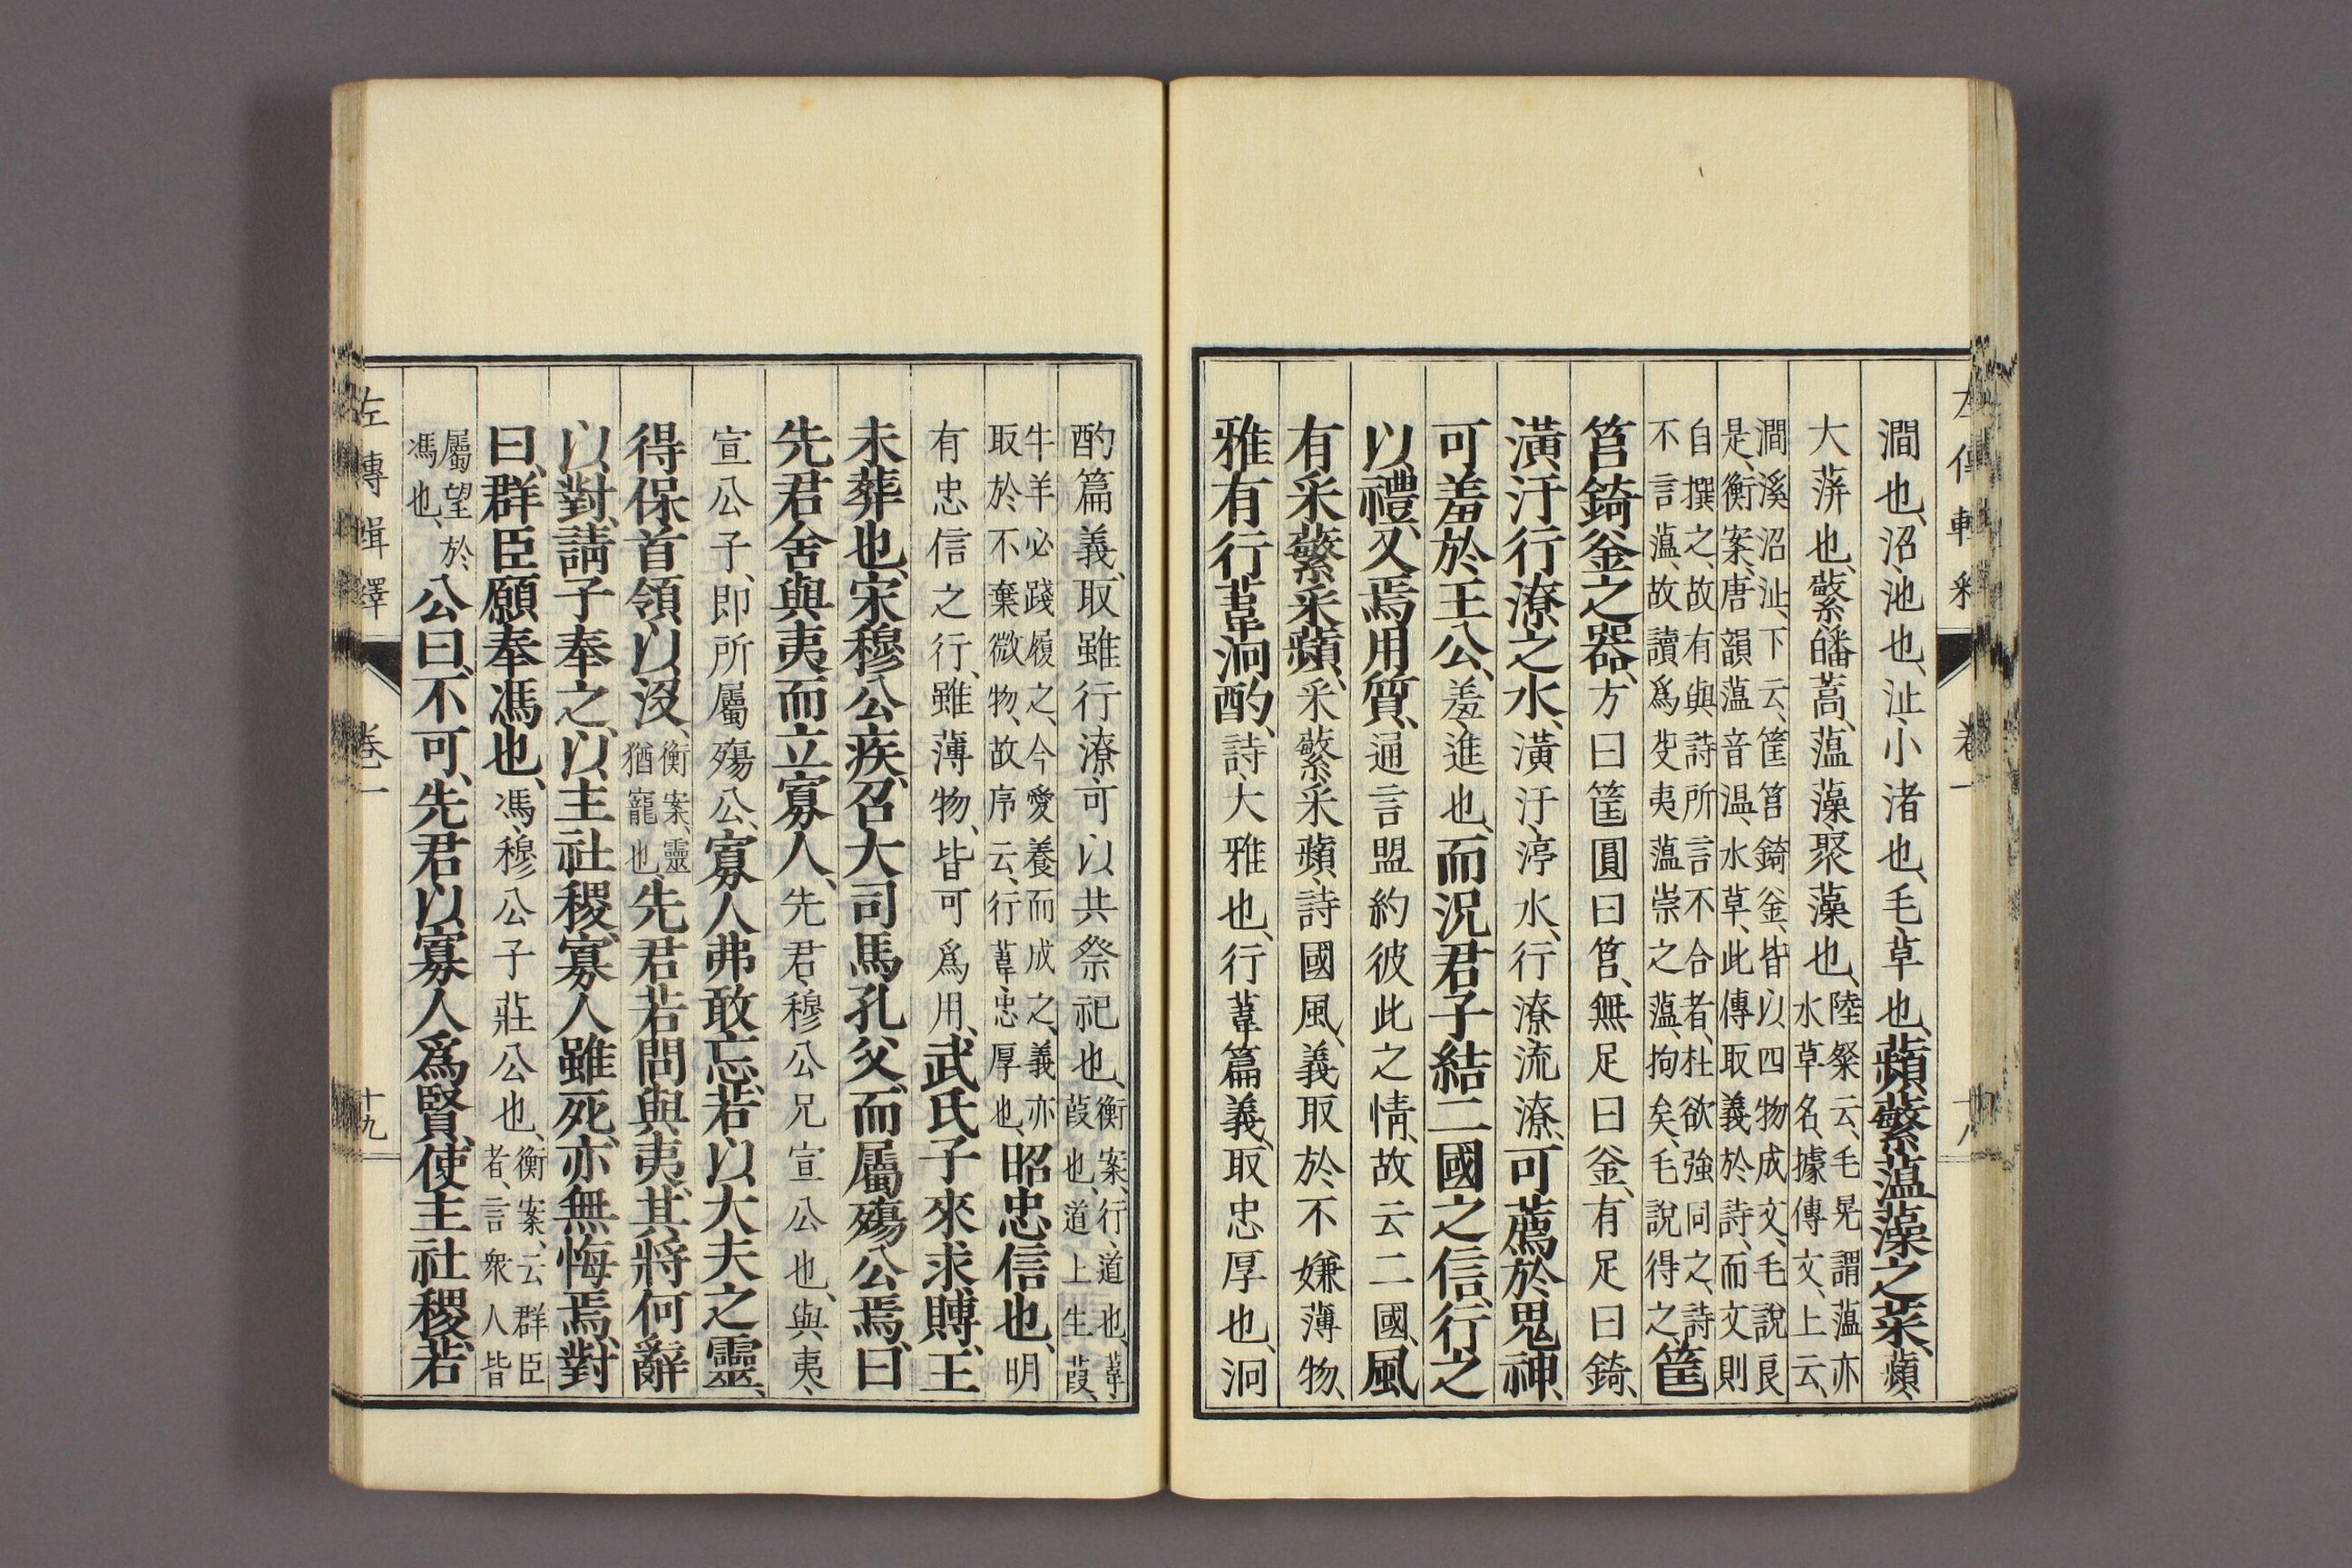 左傳輯釋 卷一 十八
澗也、沼、池也、沚、小渚也、毛、草也、蘋蘩薀藻之菜、蘋、
大蓱也、蘩、皤蒿、薀藻、聚藻也、陸粲云、毛晃謂薀亦
水草名、據傳文、上云、
澗溪沼沚、下云、筐筥錡釜、皆以四物成文、毛說良
是、衡案、唐韻薀音温、水草、此傳取義於詩、而文則
自撰之、故有與詩所言不合者、杜欲強同之、詩
不言薀、故讀爲芟夷薀崇之薀、拘矣、毛說得之、筐
筥錡釜之器、方曰筐圓曰筥、無足曰釜、有足曰錡、
潢汙行潦之水、潢汙、渟水、行潦、流潦、可薦於鬼神、
可羞於王公、羞、進也、而況君子結二國之信、行之
以禮、又焉用質、通言盟約彼此之情、故云二國、風
有采蘩采蘋、采蘩采蘋、詩國風、義取於不嫌薄物、
雅有行葦泂酌、詩、大雅也、行葦篇義、取忠厚也、泂
酌篇義、取雖行潦可以共祭祀也、衡案、行、道也、葦、
葭也、道上生葭、
牛羊必踐履之、今愛養而成之、義亦
取於不棄微物、故序云、行葦、忠厚也、昭忠信也、明
有忠信之行、雖薄物、皆可爲用、武氏子來求賻、王
未葬也、宋穆公疾、召大司馬孔父、而屬殤公焉、曰
先君舍與夷而立寡人、先君、穆公兄宣公也、與夷、
宣公子、即所屬殤公、寡人弗敢忘、若以大夫之靈、
得保首領以沒、衡案、靈
猶寵也、先君若問與夷、其將何辭
以對、請子奉之、以主社稷、寡人雖死、亦無悔焉、對
曰、群臣願奉馮也、馮、穆公子莊公也、衡案、云群臣
者、言衆人皆
屬望於
馮也、公曰、不可、先君以寡人爲賢、使主社稷、若
左傳輯釋 卷一 十九